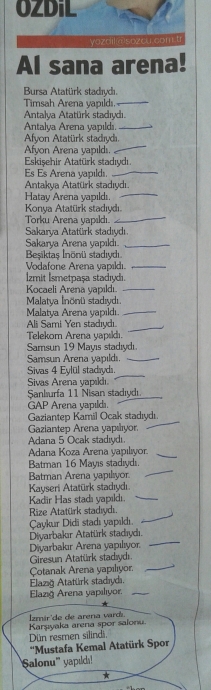 ÖZDİL
yozdil@sozcu.com.tr
Al sana arena!
Bursa Atatürk stadıydı.
Timsah Arena yapıldı.
Antalya Atatürk stadıydı.
Antalya Arena yapıldı.
Afyon Atatürk stadıydı.
Afyon Arena yapıldı.
Eskişehir Atatürk stadıydı.
Es Es Arena yapıldı.
Antakya Atatürk stadıydı.
Hatay Arena yapıldı.
Konya Atatürk stadıydı.
Torku Arena yapıldı.
Sakarya Atatürk stadıydı.
Sakarya Arena yapıldı.
Beşiktaş İnönü stadıydı.
Vodafone Arena yapıldı.
İzmit İsmetpaşa stadıydı.
Kocaeli Arena yapıldı.
Malatya İnönü stadıydı.
Malatya Arena yapıldı.
Ali Sami Yen stadıydı.
Telekom Arena yapıldı.
Samsun 19 Mayıs stadıydı.
Samsun Arena yapıldı.
Sivas 4 Eylül stadıydı.
Sivas Arena yapıldı.
Şanlıurfa 11 Nisan stadıydı.
GAP Arena yapıldı.
Gaziantep Kamil Ocak stadıydı.
Gaziantep Arena yapılıyor.
Adana 5 Ocak stadıydı.
Adana Koza Arena yapılıyor.
Batman 16 Mayıs stadıydı.
Batman Arena yapılıyor.
Kayseri Atatürk stadıydı.
Kadir Has stadı yapıldı.
Rize Atatürk stadıydı.
Çaykur Didi stadı yapıldı.
Diyarbakır Atatürk stadıydı.
Diyarbakır Arena yapılıyor.
Giresun Atatürk stadıydı.
Çotanak Arena yapılıyor.
Elazığ Atatürk stadıydı.
Elazığ Arena yapılıyor.
★
İzmir'de de arena vardı.
Karşıyaka arena spor salonu.
Dün resmen silindi.
"Mustafa Kemal Atatürk Spor
Salonu" yapıldı!
★